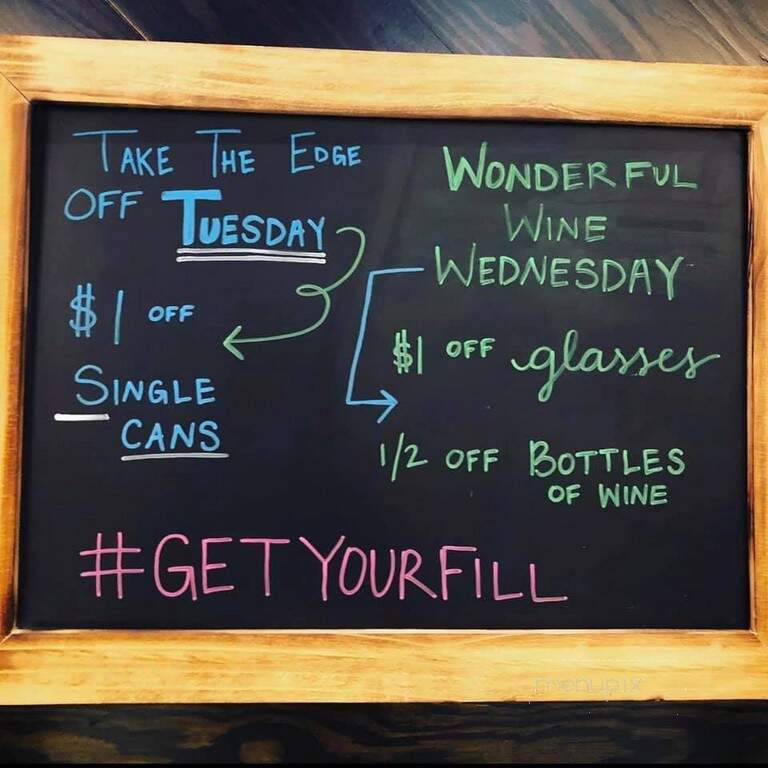 TAKE THE EDGE
OFF TUESDAY
$1 OFF
SINGLE
CANS
WONDERFUL
WINE
WEDNESDAY
$1 OFF glasses
1/2 OFF BOTTLES
OF WINE
#GETYOURFILL
menupix